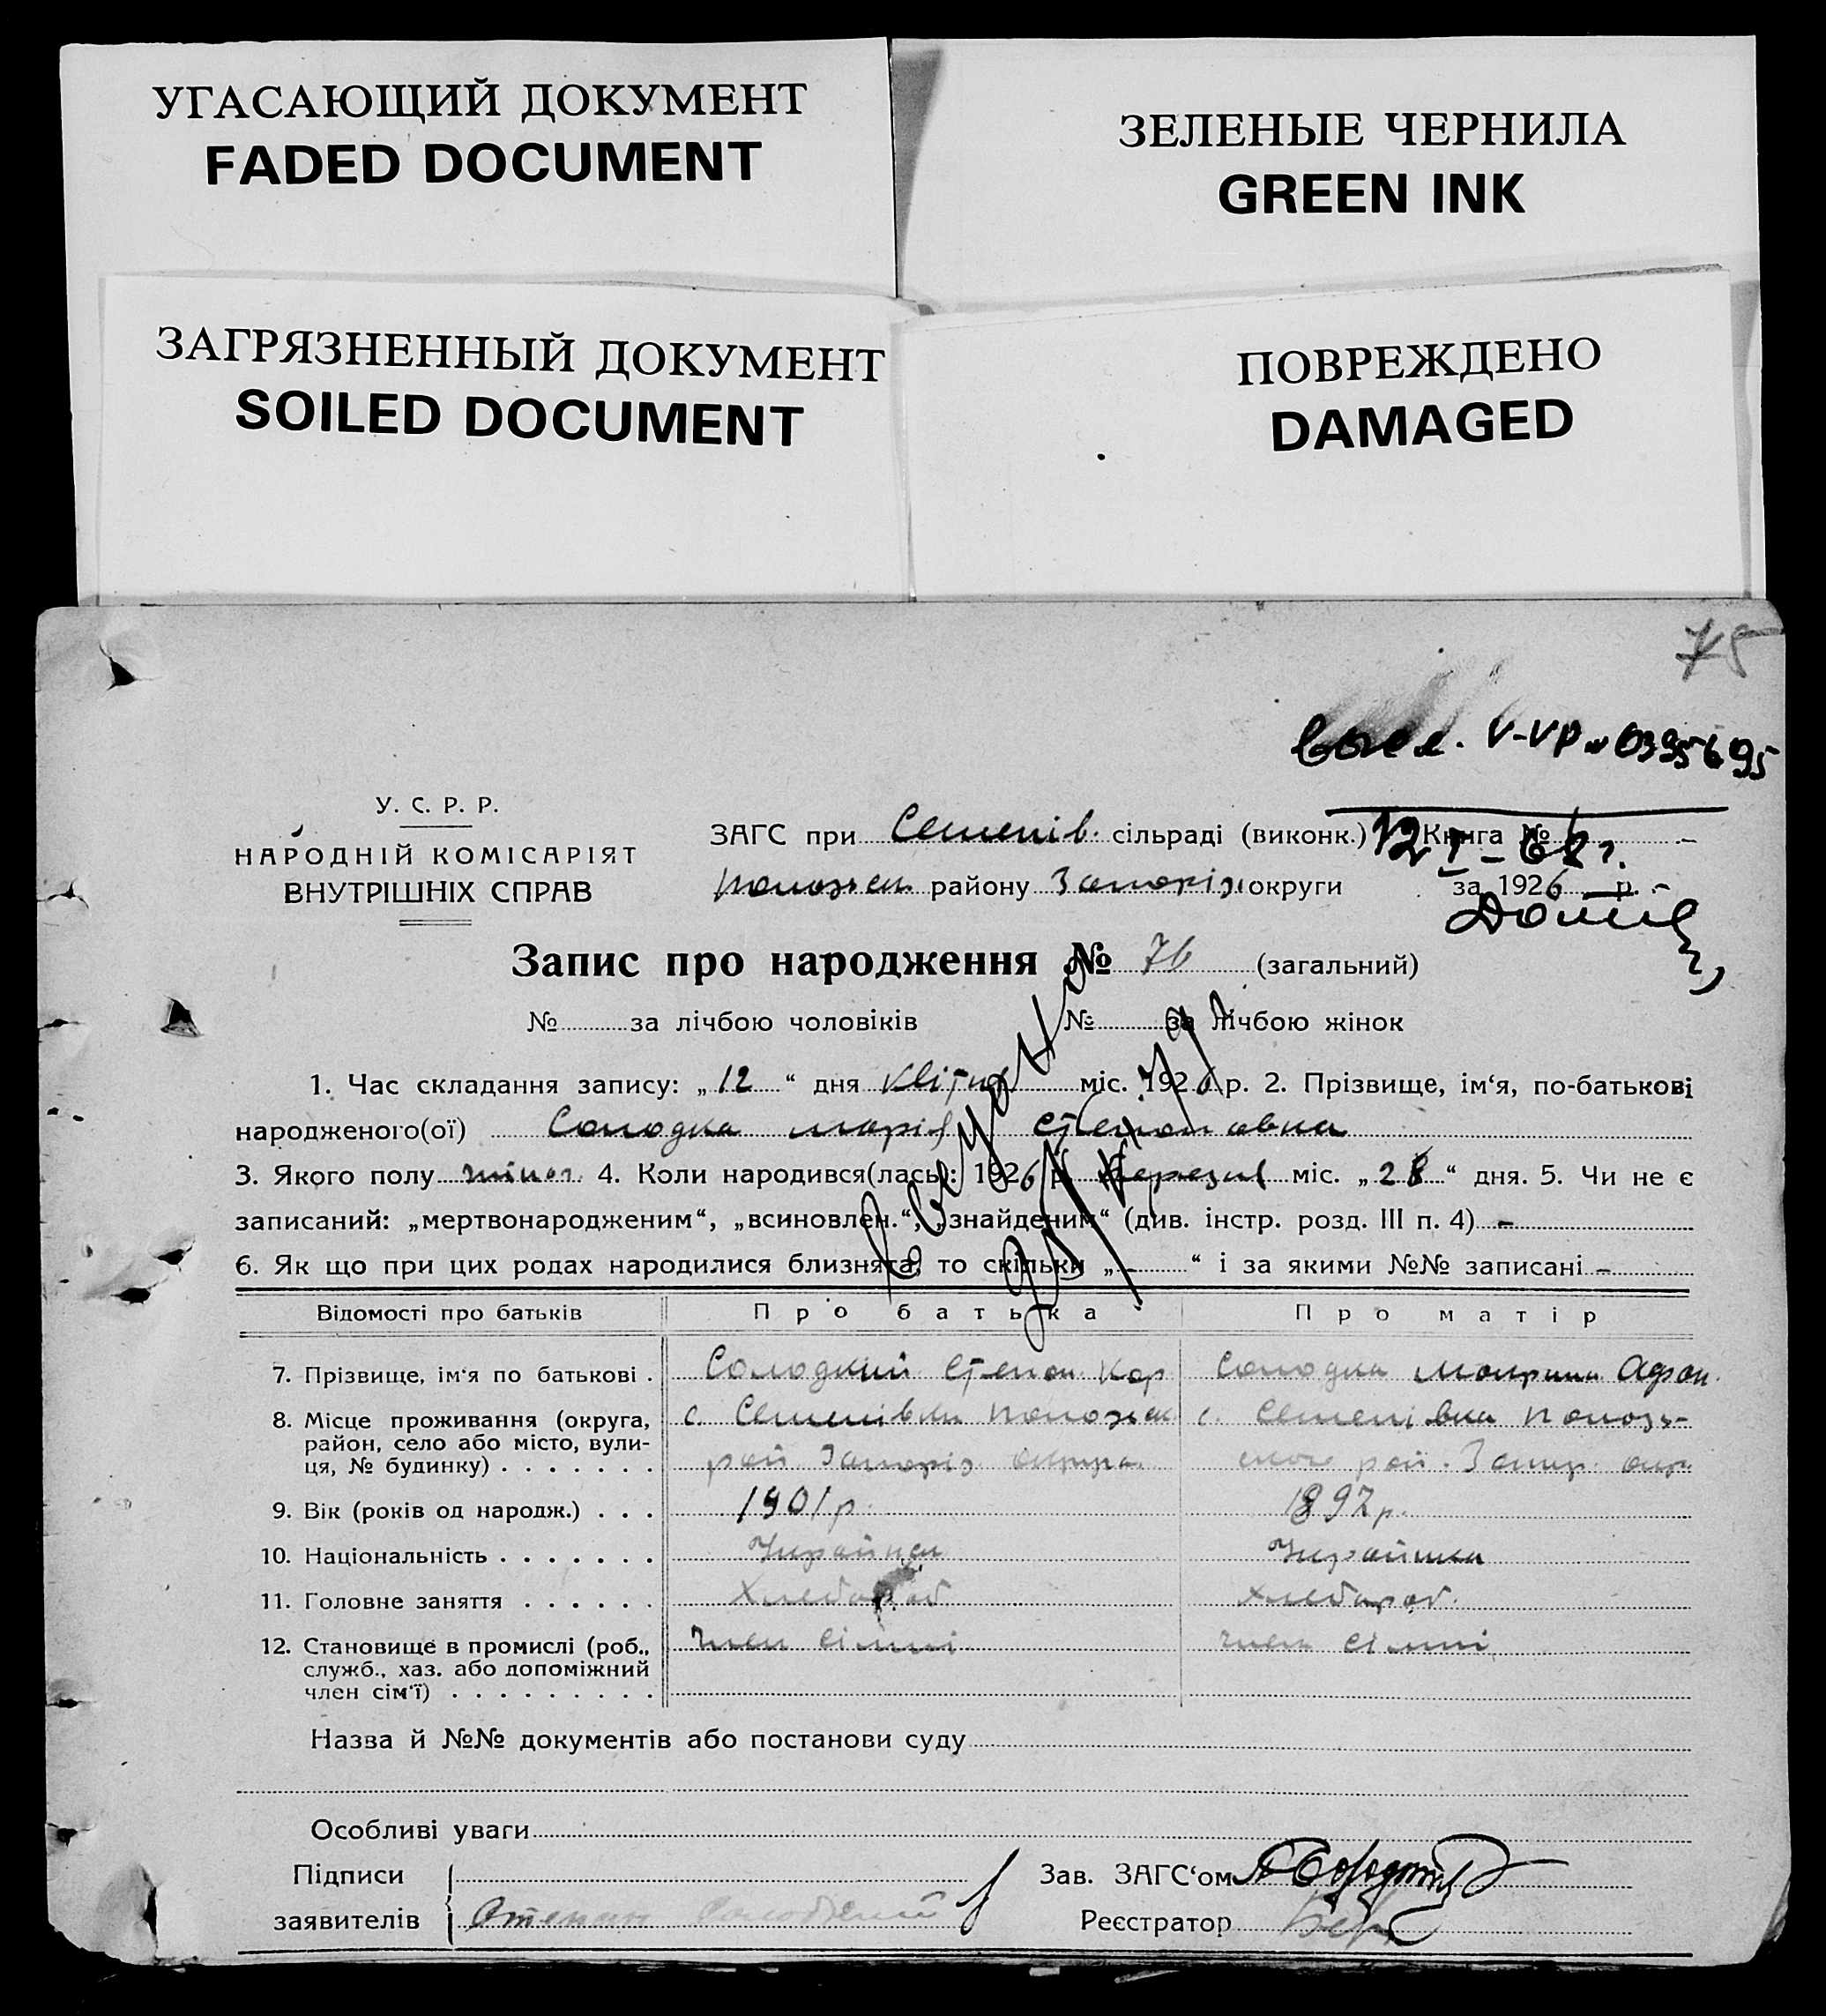 УГАСАЮЩИЙ ДОКУМЕНТ
FADED DOCUMENT
ЗЕЛЕНЫЕ ЧЕРНИЛА
GREEN INK
ЗАГРЯЗНЕННЫЙ ДОКУМЕНТ
SOILED DOCUMENT
ПОВРЕЖДЕНО
DAMAGED
75
V-УР № 0395695
У. С. Р. Р.
НАРОДНІЙ КОМІСАРІЯТ
ВНУТРІШНІХ СПРАВ
ЗАГС при Семенів. сільраді (виконк.) Книга №
12
района Запоріз округи за 1926 р.
Запис про народження № 76 (загальний)
№ за лічбою чоловіків № за лічбою жінок
1. Час складання запису: „12“ дня квітня міс. 1926 р. 2. Прізвище, ім‘я, по-батькові
народженого(ої) Солодка Марія Степановна
3. Якого полу жіноч. 4. Коли народився(лась): 1926 р. березня міс. „28“ дня. 5. Чи не є
записаний: „мертвонародженим“, „всиновлен.“, „знайденим“ (див. інстр. розд. III п. 4) –
6. Як що при цих родах народилися близнята, то скільки „–“ і за якими №№ записані –
Відомості про батьків Про батька Про матір
7. Прізвище, ім‘я по батькові . Солодкий Степан Кар Солодка Мотрина Афан.
8. Місце проживання (округа, с. Семенівка Положск с. Семенівка Положь-
район, село або місто, вули-
ця, № будинку) . . . . . . . рай Запоріз округа ского рай. Запор. окр
9. Вік (років од народж.) . . . 1901 р. 1897 р.
10. Національність . . . . . . . Українец Українка
11. Головне заняття . . . . . . Хлебароб Хлебароб.
12. Становище в промислі (роб., член сімї член сімї
служб., хаз. або допоміжний
член сім‘ї) . . . . . . . . .
Назва й №№ документів або постанови суду
Особливі уваги
Підписи
заявителів Степан Солодкий
Зав. ЗАГС‘ом
Реєстратор